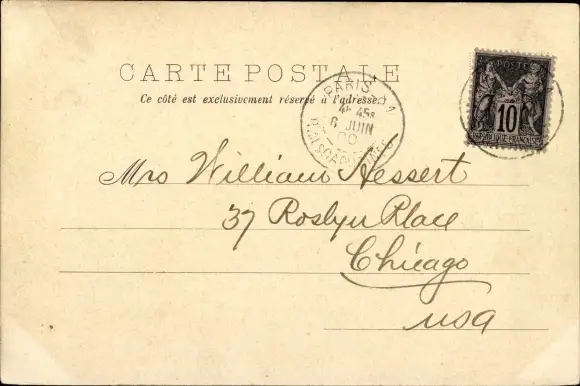 CARTE POSTALE
Ce côté est exclusivement réservé à l'adresse.
PARIS
6 JUIN
00
POSTE
10
REPUBLIQUE FRANÇAISE
Mrs William Hessert
37 Roslyn Place
Chicago
USA